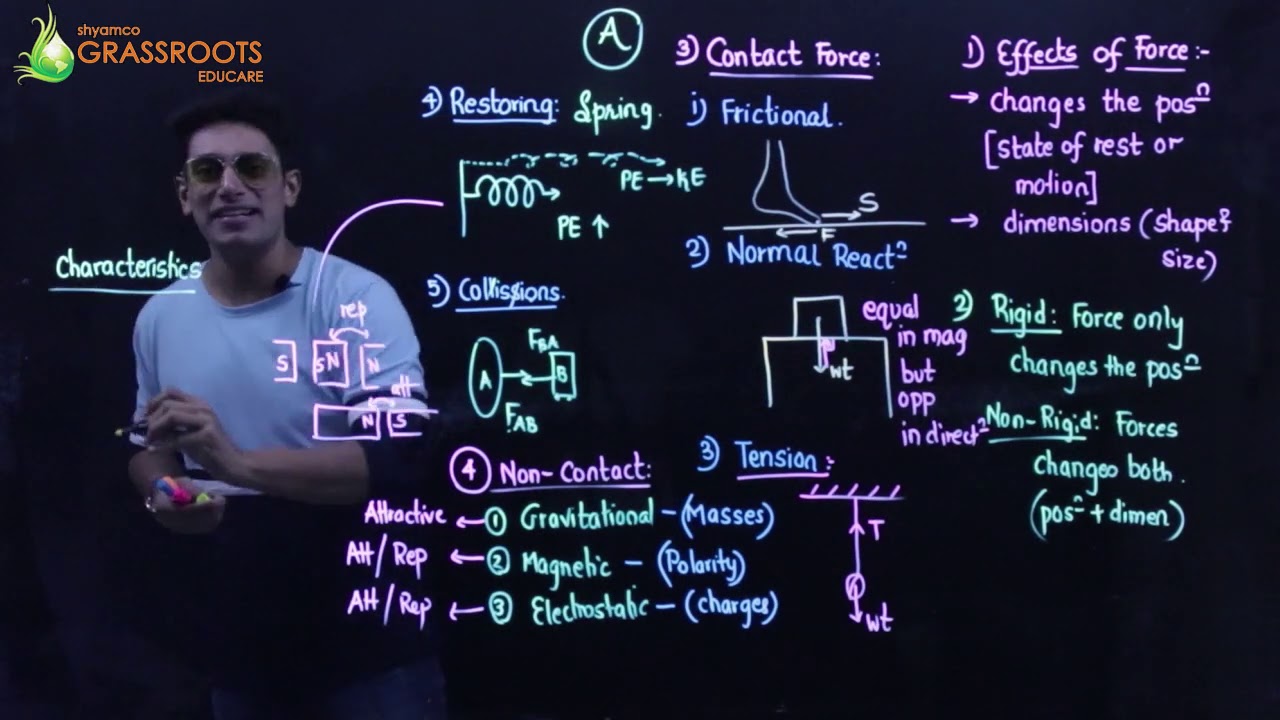 shyamco
GRASSROOTS
EDUCARE
A
1) Effects of Force:-
→ changes the posⁿ
[state of rest or
motion]
→ dimensions (shape &
size)
2) Rigid: Force only
changes the posⁿ
Non-Rigid: Forces
changes both.
(posⁿ + dimen)
3) Contact Force:
1) Frictional.
S
F
2) Normal Reactⁿ
equal
in mag
but
opp
in directⁿ
R
wt
3) Tension:
T
wt
4) Restoring: Spring.
PE → KE
PE ↑
5) Collissions.
FBA
A
B
FAB
4 Non-Contact:
Attractive ← 1 Gravitational - (Masses)
Att/Rep ← 2 Magnetic - (Polarity)
Att/Rep ← 3 Electrostatic - (charges)
Characteristics
rep
S SN N
att
N S